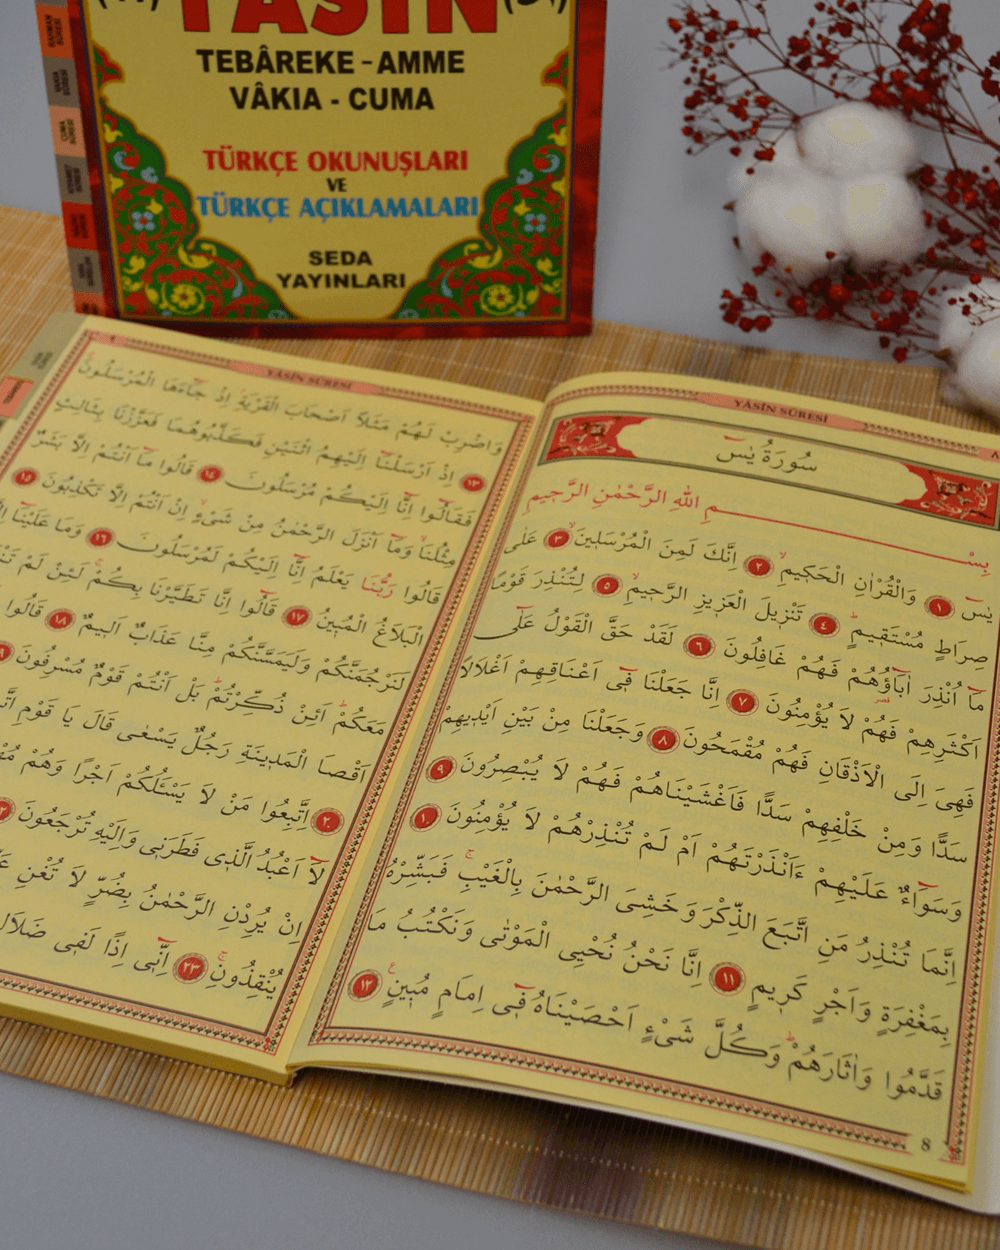 YASİN
TEBÂREKE - AMME
VÂKIA - CUMA
TÜRKÇE OKUNUŞLARI
VE
TÜRKÇE AÇIKLAMALARI
SEDA
YAYINLARI
YÂSİN SÛRESİ
٨
سُورَةُ يٰسٓ
بِسْمِ اللّٰهِ الرَّحْمٰنِ الرَّحٖيمِ
يٰسٓ ﴿١﴾ وَالْقُرْاٰنِ الْحَكٖيمِۙ ﴿٢﴾ اِنَّكَ لَمِنَ الْمُرْسَلٖينَۙ ﴿٣﴾ عَلٰى
صِرَاطٍ مُسْتَقٖيمٍؕ ﴿٤﴾ تَنْزٖيلَ الْعَزٖيزِ الرَّحٖيمِۙ ﴿٥﴾ لِتُنْذِرَ قَوْمًا
مَٓا اُنْذِرَ اٰبَٓاؤُهُمْ فَهُمْ غَافِلُونَ ﴿٦﴾ لَقَدْ حَقَّ الْقَوْلُ عَلٰٓى
اَكْثَرِهِمْ فَهُمْ لَا يُؤْمِنُونَ ﴿٧﴾ اِنَّا جَعَلْنَا فٖٓى اَعْنَاقِهِمْ اَغْلَالًا
فَهِىَ اِلَى الْاَذْقَانِ فَهُمْ مُقْمَحُونَ ﴿٨﴾ وَجَعَلْنَا مِنْ بَيْنِ اَيْدٖيهِمْ
سَدًّا وَمِنْ خَلْفِهِمْ سَدًّا فَاَغْشَيْنَاهُمْ فَهُمْ لَا يُبْصِرُونَ ﴿٩﴾
وَسَوَٓاءٌ عَلَيْهِمْ ءَاَنْذَرْتَهُمْ اَمْ لَمْ تُنْذِرْهُمْ لَا يُؤْمِنُونَ ﴿١٠﴾
اِنَّمَا تُنْذِرُ مَنِ اتَّبَعَ الذِّكْرَ وَخَشِىَ الرَّحْمٰنَ بِالْغَيْبِۚ فَبَشِّرْهُ
بِمَغْفِرَةٍ وَاَجْرٍ كَرٖيمٍ ﴿١١﴾ اِنَّا نَحْنُ نُحْيِى الْمَوْتٰى وَنَكْتُبُ مَا
قَدَّمُوا وَاٰثَارَهُمْؕ وَكُلَّ شَىْءٍ اَحْصَيْنَاهُ فٖٓى اِمَامٍ مُبٖينٍ ﴿١٢﴾
8
YÂSİN SÛRESİ
وَاضْرِبْ لَهُمْ مَثَلًا اَصْحَابَ الْقَرْيَةِۘ اِذْ جَٓاءَهَا الْمُرْسَلُونَۚ
﴿١٣﴾ اِذْ اَرْسَلْنَٓا اِلَيْهِمُ اثْنَيْنِ فَكَذَّبُوهُمَا فَعَزَّزْنَا بِثَالِثٍ
فَقَالُٓوا اِنَّٓا اِلَيْكُمْ مُرْسَلُونَ ﴿١٤﴾ قَالُوا مَٓا اَنْتُمْ اِلَّا بَشَرٌ
مِثْلُنَاۙ وَمَٓا اَنْزَلَ الرَّحْمٰنُ مِنْ شَىْءٍۙ اِنْ اَنْتُمْ اِلَّا تَكْذِبُونَ ﴿١٥﴾
قَالُوا رَبُّنَا يَعْلَمُ اِنَّٓا اِلَيْكُمْ لَمُرْسَلُونَ ﴿١٦﴾ وَمَا عَلَيْنَٓا
الْبَلَاغُ الْمُبٖينُ ﴿١٧﴾ قَالُٓوا اِنَّا تَطَيَّرْنَا بِكُمْۚ لَئِنْ لَمْ
لَنَرْجُمَنَّكُمْ وَلَيَمَسَّنَّكُمْ مِنَّا عَذَابٌ اَلٖيمٌ ﴿١٨﴾ قَالُوا
مَعَكُمْؕ اَئِنْ ذُكِّرْتُمْؕ بَلْ اَنْتُمْ قَوْمٌ مُسْرِفُونَ
اَقْصَا الْمَدٖينَةِ رَجُلٌ يَسْعٰى قَالَ يَا قَوْمِ
﴿٢٠﴾ اِتَّبِعُوا مَنْ لَا يَسْئَلُكُمْ اَجْرًا وَهُمْ
لَٓا اَعْبُدُ الَّذٖى فَطَرَنٖى وَاِلَيْهِ تُرْجَعُونَ
اِنْ يُرِدْنِ الرَّحْمٰنُ بِضُرٍّ لَا تُغْنِ
يُنْقِذُونِۚ ﴿٢٣﴾ اِنّٖٓى اِذًا لَفٖى